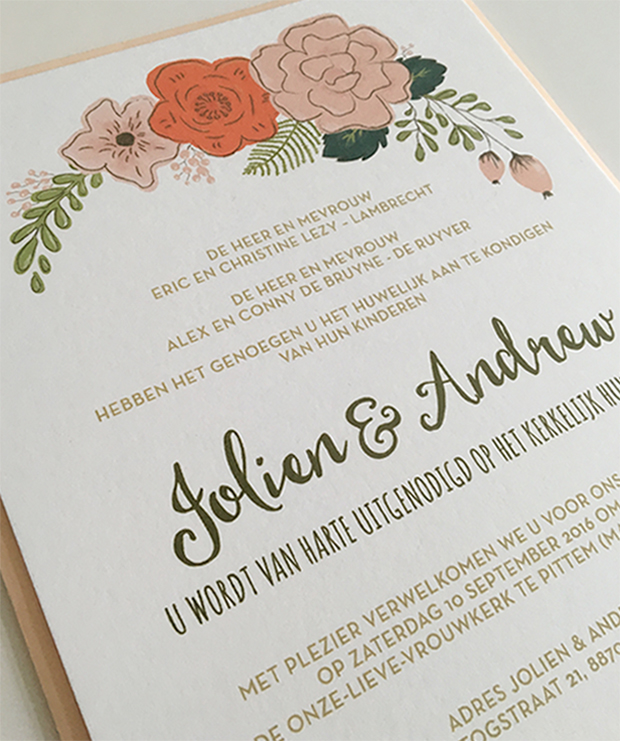 DE HEER EN MEVROUW
ERIC EN CHRISTINE LEZY - LAMBRECHT
DE HEER EN MEVROUW
ALEX EN CONNY DE BRUYNE - DE RUYVER
HEBBEN HET GENOEGEN U HET HUWELIJK AAN TE KONDIGEN
VAN HUN KINDEREN
Jolien & Andrew
U WORDT VAN HARTE UITGENODIGD OP HET KERKELIJK
MET PLEZIER VERWELKOMEN WE U VOOR ONS
OP ZATERDAG 10 SEPTEMBER 2016 OM
DE ONZE-LIEVE-VROUWKERK TE PITTEM
ADRES JOLIEN &
21,